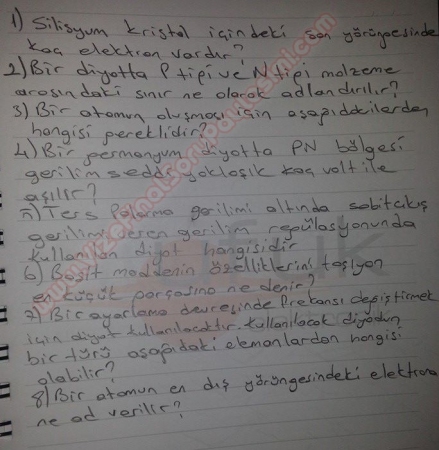 1) Silisyum kristal içindeki son yörüngesinde
kaç elektron vardır?
2) Bir diyotta P tipi ve N tipi malzeme
arasındaki sınır ne olarak adlandırılır?
3) Bir atomun oluşması için aşağıdakilerden
hangisi gereklidir?
4) Bir germanyum diyotta PN bölgesi
gerilim seddi yaklaşık kaç volt ile
aşılır?
5) Ters Polarma gerilimi altında sabit çıkış
gerilimi veren gerilim regülasyonunda
kullanılan diyot hangisidir
6) Basit maddenin özelliklerini taşıyan
en küçük parçasına ne denir?
7) Bir ayarlama devresinde frekansı değiştirmek
için diyot kullanılacaktır. kullanılacak diyodun
bir türü aşağıdaki elemanlardan hangisi
olabilir?
8) Bir atomun en dış yörüngesindeki elektrona
ne ad verilir?